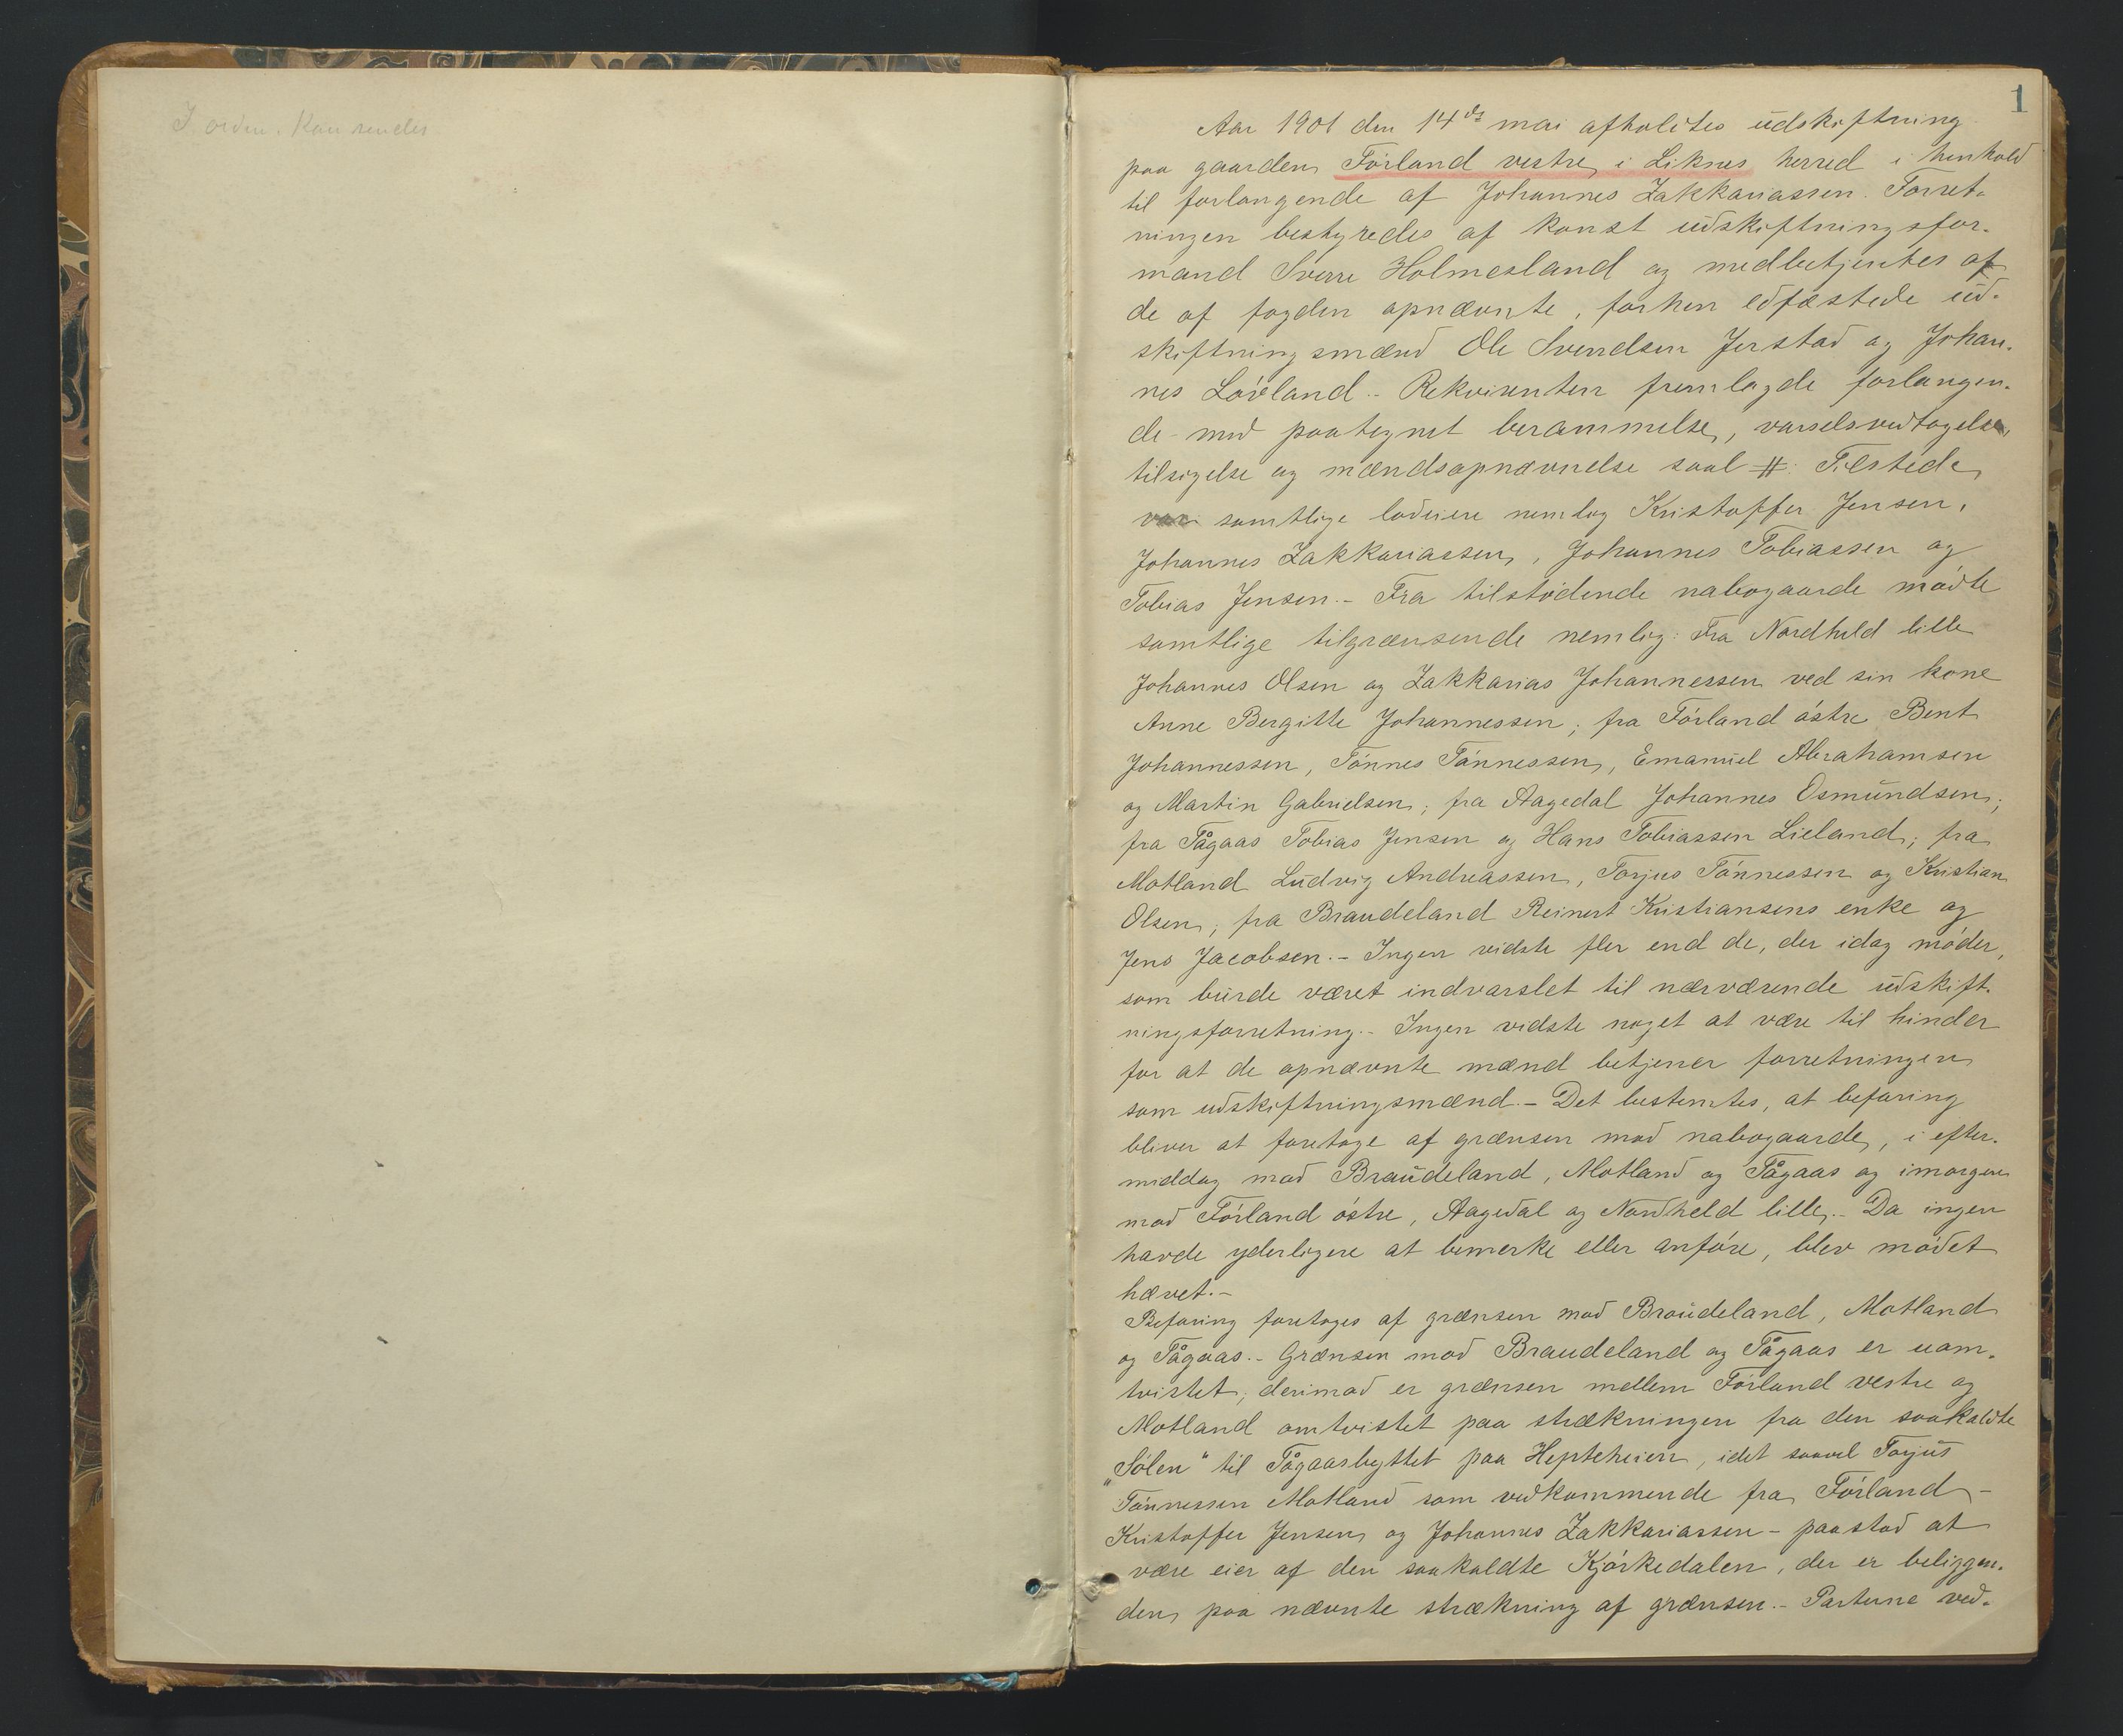 I orden. Kan sendes
1
Aar 1901 den 14de mai afholdtes udskiftning
paa gaarden Førland vestre i Liknes herred i henhold
til forlangende af Johannes Zakkariassen. Forret-
ningen bestyredes af konst udskiftningsfor-
mand Sverre Holmesland og medbetjentes af
de af fogden opnævnte, forhen edfæstede ud-
skiftningsmænd Ole Svendsen Jerstad og Johan-
nes Løvland.- Rekvirenten fremlagde forlangen-
de med paategnet berammelse, varselsvedtagelse,
tilsigelse og mændsopnævnelse saal #: Tilstede
var samtlige lodeiere nemlig Kristoffer Jensen,
Johannes Zakkariassen, Johannes Tobiassen og
Tobias Jensen.- Fra tilstødende nabogaarde mødte
samtlige tilgrænsende nemlig: Fra Nordheld lille
Johannes Olsen og Zakkarias Johannessen ved sin kone
Anne Bergitte Johannessen; fra Førland østre Bent
Johannessen, Tønnes Tønnessen, Emanuel Abrahamsen
og Martin Gabrielsen; fra Aagedal Johannes Osmundsen;
fra Tågaas Tobias Jensen og Hans Tobiassen Lieland; fra
Motland Ludvig Andreassen, Torjus Tønnessen og Kristian
Olsen; fra Braudeland Reinert Kristiansens enke og
Jens Jacobsen.- Ingen vidste fler end de, der idag møder,
som burde været indvarslet til nærværende udskift-
ningsforretning.- Ingen vidste noget at være til hinder
for at de opnævnte mænd betjener forretningen
som udskiftningsmænd.- Det bestemtes, at befaring
bliver at foretage af grænsen mod nabogaarde, i efter-
middag mod Braudeland, Motland og Tågaas og imorgen
mod Førland østre, Aagedal og Nordheld lille.- Da ingen
havde yderligere at bemerke eller anføre, blev mødet
hævet.-
Befaring foretoges af grænsen mod Braudeland, Motland
og Tågaas.- Grænsen mod Braudeland og Tågaas er uom-
tvistet; derimod er grænsen mellem Førland vestre og
Motland omtvistet paa strækningen fra den saakaldte
"Sølen" til Tågaasbyttet paa Hepteheien, idet saavel Torjus
Tønnessen Motland som vedkommende fra Førland -
Kristoffer Jensen og Johannes Zakkariassen - paastod at
være eier af den saakaldte Kjørkedalen, der er beliggen-
den paa nævnte strækning af grænsen.- Parterne ved-